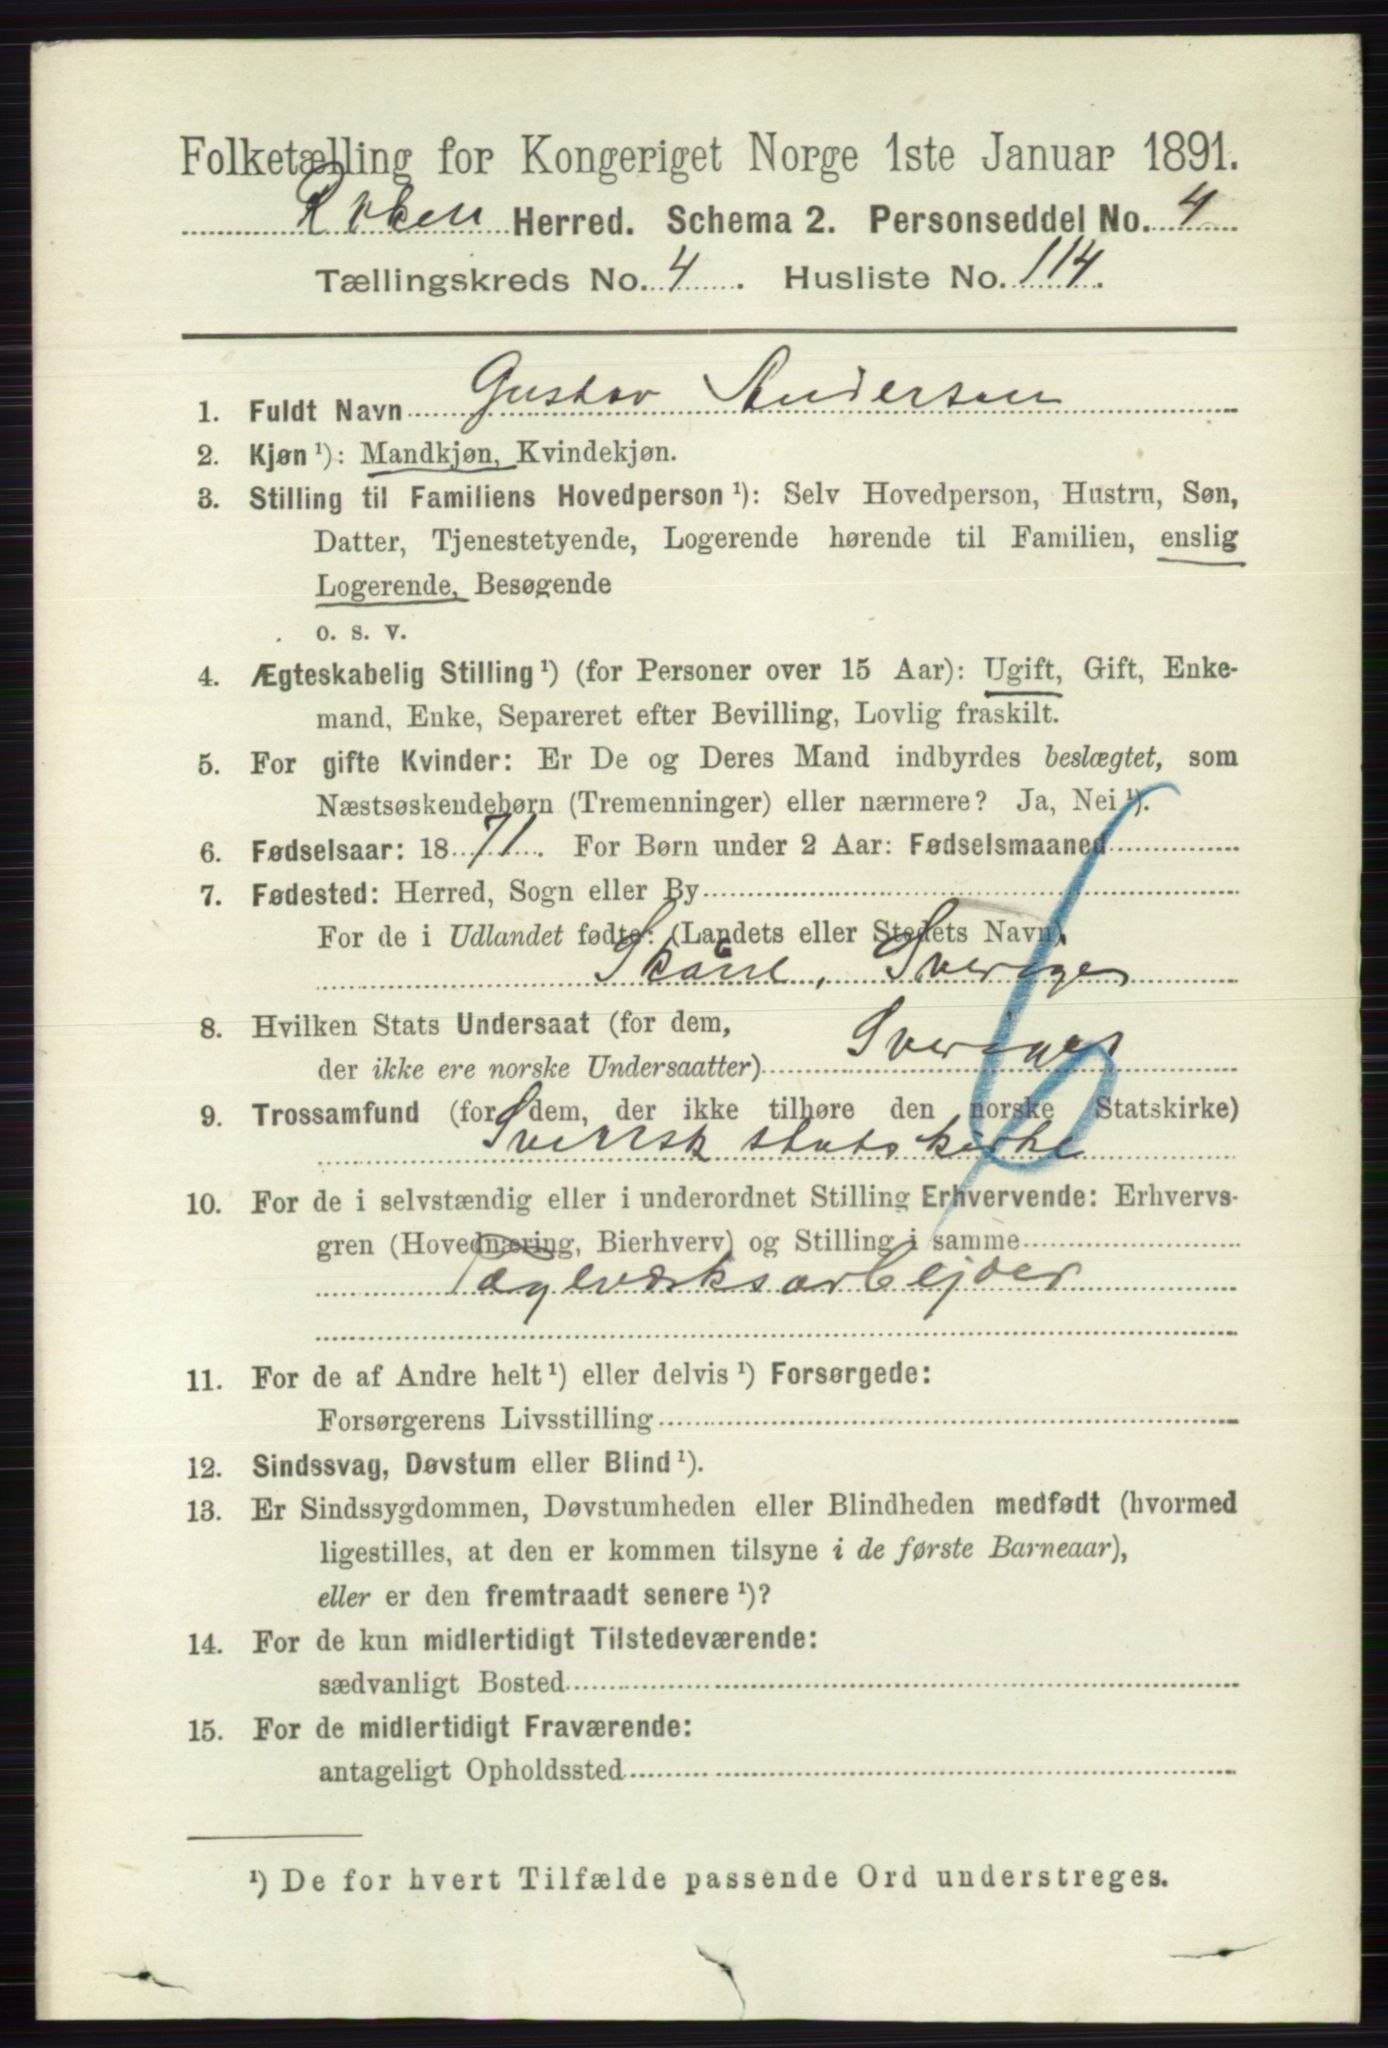 Folketælling for Kongeriget Norge 1ste Januar 1891.
Røken Herred. Schema 2. Personseddel No. 4
Tællingskreds No. 4. Husliste No. 114.
1. Fuldt Navn Gustav Andersen
2. Kjøn ¹): Mandkjøn, Kvindekjøn.
3. Stilling til Familiens Hovedperson ¹): Selv Hovedperson, Hustru, Søn,
Datter, Tjenestetyende, Logerende hørende til Familien, enslig
Logerende, Besøgende
o. s. v.
4. Ægteskabelig Stilling ¹) (for Personer over 15 Aar): Ugift, Gift, Enke-
mand, Enke, Separeret efter Bevilling, Lovlig fraskilt.
5. For gifte Kvinder: Er De og Deres Mand indbyrdes beslægtet, som
Næstsøskendebørn (Tremenninger) eller nærmere? Ja, Nei ¹).
6. Fødselsaar: 1871. For Børn under 2 Aar: Fødselsmaaned
7. Fødested: Herred, Sogn eller By
For de i Udlandet fødte: (Landets eller Stedets Navn)
Skåne, Sverige
8. Hvilken Stats Undersaat (for dem,
der ikke ere norske Undersaatter) Sveriges
9. Trossamfund (for dem, der ikke tilhøre den norske Statskirke)
Svensk statskirke
10. For de i selvstændig eller i underordnet Stilling Erhvervende: Erhvervs-
gren (Hovednæring, Bierhverv) og Stilling i samme
Teglværksarbejder
11. For de af Andre helt ¹) eller delvis ¹) Forsørgede:
Forsørgerens Livsstilling
12. Sindssvag, Døvstum eller Blind ¹).
13. Er Sindssygdommen, Døvstumheden eller Blindheden medfødt (hvormed
ligestilles, at den er kommen tilsyne i de første Barneaar),
eller er den fremtraadt senere ¹)?
14. For de kun midlertidigt Tilstedeværende:
sædvanligt Bosted
15. For de midlertidigt Fraværende:
antageligt Opholdssted
¹) De for hvert Tilfælde passende Ord understreges.